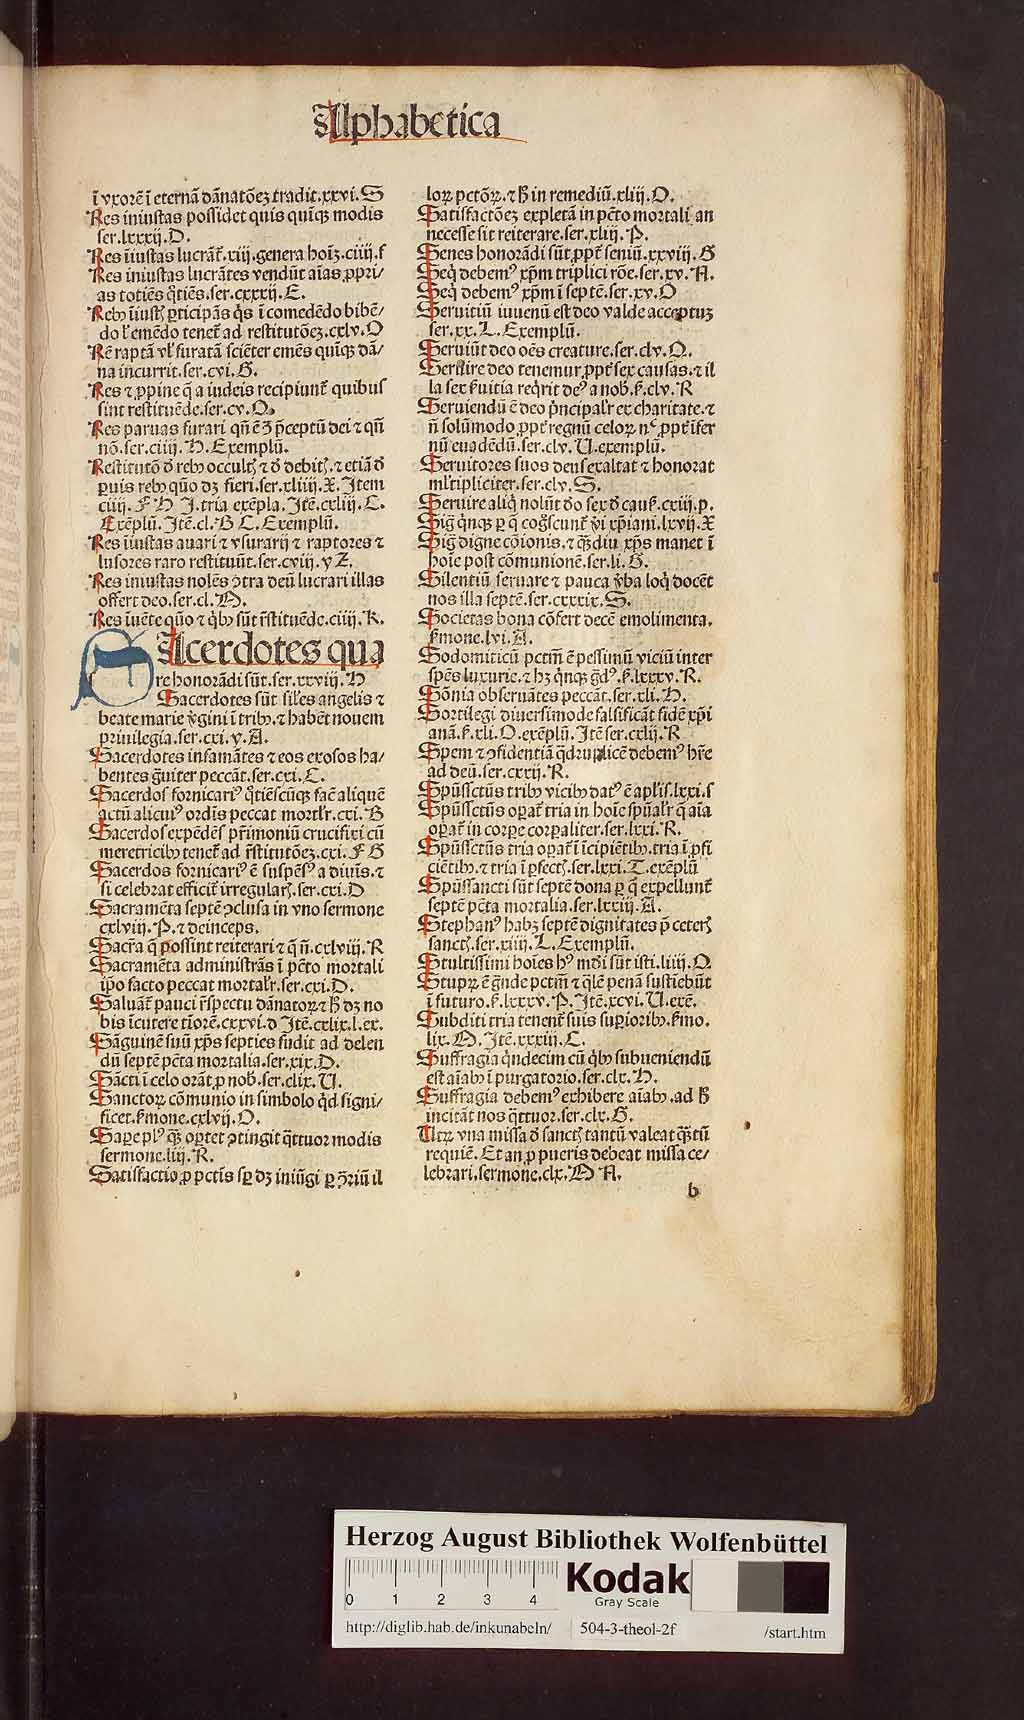 Alphabetica
ī vxorē ī eternā dānatōeꝫ tradit.xxvi.S
Res iniustas possidet quis quīqꝫ modis
ser.lxxxij.D.
Res īiustas lucrāt᷑.xiij.genera hoīꝫ.ciiij.f
Res iniustas lucrātes vendūt aīas ꝓpri/
as totiēs q̄tiēs.ser.cxxxij.E.
Rebꝰ īiustꝭ ꝑticipās q̇s ī comedēdo bibē/
do ł emēdo tenet᷑ ad restitutōeꝫ.cxlv.O
Rē raptā vł furatā sciēter emēs quīqꝫ dā/
na incurrit.ser.cvi.G.
Res ⁊ ꝓpine q̄ a iudeis recipiunt᷑ quibus
sint restituēde.ser.cv.O.
Res paruas furari qn̄ ē ꝯ p̄ceptū dei ⁊ qn̄
nō.ser.ciiij.H.Exemplū.
Restitutō đ rebꝰ occultꝭ ⁊ đ debitꝭ.⁊ etiā đ
ꝑuis rebꝰ quō dꝫ fieri.ser.xliiij.X.Item
ciiij.F H I.tria exēpla.Itē.cxliij.C.
Exēplū.Itē.cl.B C.Exemplū.
Res īiustas auari ⁊ vsurarij ⁊ raptores ⁊
lusores raro restituūt.ser.cviij.y Z.
Res iniustas nolēs ꝯtra deū lucrari illas
offert deo.ser.cl.M.
Res īuēte quō ⁊ q̇bꝰ sūt r̄stituēde.ciiij.K.
SAcerdotes qua
re honorādi sūt.ser.xxviij.H
Sacerdotes sūt siłes angelis ⁊
beate marie v̄gini ī tribꝰ.⁊ habēt nouem
priuilegia.ser.cxi.y.A.
Sacerdotes infamātes ⁊ eos exosos ha/
bentes g̃uiter peccāt.ser.cxi.C.
Sacerdos fornicariꝰ q̄tiēscūqꝫ facē aliquē
actū aliciuiꝰ ordīs peccat mortłr.cxi.B
Sacerdos expēdēs pr̄imoniū crucifixi cū
meretricibꝰ tenet᷑ ad r̄stitutōeꝫ.cxi.F G
Sacerdos fornicariꝰ ē suspēsꝰ a diuīs.⁊
si celebrat efficit᷑ irregularꝭ.ser.cxi.D
Sacramēta septē ꝯclusa in vno sermone
cxlviij.P.⁊ deinceps.
Sacr̄a q̄ possint reiterari ⁊ q̄ n̄.cxlviij.R
Sacramēta administrās ī pctō mortali
ip̄o facto peccat mortałr.ser.cxi.D.
Saluāt᷑ pauci r̄spectu dānatoꝝ ⁊ ħ dꝫ no
bis īcutere tīorē.cxxvi.d Itē.cxlix.l.ex.
Sāguinē suū xp̄s septies fudit ad delen
dū septē pctā mortalia.ser.xix.D.
Sācti ī celo orāt ꝓ nob̄.ser.clix.U.
Sanctoꝝ cōmunio in simbolo q̇d signi/
ficet.ẜmone.cxlvij.O.
Saꝑe plꝰ qꝫ oꝑtet ꝯtingit q̄ttuor modis
sermone.liij.R.
Satisfactio ꝓ pctīs sꝑ dꝫ iniūgi ꝑ ꝯ̄riū il
loꝝ pctōꝝ.⁊ ħ in remediū.xliij.O.
Satisfactōeꝫ expletā in pctō mortali an
necesse sit reiterare.ser.xliij.P.
Senes honorādi sūt ꝓpt᷑ seniū.xxviij.G
Seq̇ debemꝰ xp̄m triplici rōe.ser.xv.N.
Seq̇ debemꝰ xp̄m ī septē.ser.xv.O
Seruitiū iuuenū est deo valde acceptuꝫ
ser.xx.L.Exemplū.
Seruiūt deo oēs creature.ser.clv.Q.
Seruire deo tenemur ꝓpt᷑ sex causas.⁊ il
la sex ẜuitia reqͥrit deꝰ a nob̄.ẜ.clv.R
Seruiendū ē deo pͥncipałr ex charitate.⁊
n̄ solūmodo ꝓpt᷑ regnū celoꝝ nͨ ꝓpt᷑ īfer
nū euadēdū.ser.clv.U.exemplū.
Seruitores suos deus exaltat ⁊ honorat
młtipliciter.ser.clv.S.
Seruire aliq̇ nolūt đo sex đ cauẜ.cxiij.p.
Sig̃ q̇nqꝫ ꝑ q̄ cog̃scunt᷑ v̄i xp̄iani.lxvij.X
Sig̃ digne cōionis.⁊ qꝫdiu xp̄s manet ī
hoīe post cōmunionē.ser.li.G.
Silentiū seruare ⁊ pauca v̄ba loq̇ docēt
nos illa septē.ser.cxxxix.S.
Societas bona cōfert decē emolimenta.
ẜmone.lvi.A.
Sodomiticū pctm̄ ē pessimū viciū inter
spēs luxurie.⁊ hꝫ q̇nqꝫ g̃dꝰ.ẜ.lxxxv.R.
Sōnia obseruātes peccāt.ser.xli.H.
Sortilegi diuersimode falsificāt fidē xp̄i
anā.ẜ.xli.O.exēplū.Itē ser.cxlij.R
Spem ⁊ ꝯfidentiā q̄druplicē debemꝰ hr̄e
ad deū.ser.cxxij.R.
Spūssctūs tribꝰ vicibꝰ datꝰ ē apłis.lxxi.s
Spūssctūs oꝑat᷑ tria in hoīe spūałr q̄ aīa
oꝑat᷑ in corꝑe corꝑaliter.ser.lxxi.R.
Spūssctūs tria oꝑat᷑ ī īcipiētibꝰ.tria ī ꝓfi
ciētibꝰ.⁊ tria ī ꝑfectꝭ.ser.lxxi.T.exēplū
Spūssancti sūt septē dona ꝑ q̄ expellunt᷑
septē pctā mortalia.ser.lxxiij.A.
Stephanꝰ habꝫ septē dignitates p̄ ceterꝭ
sanctꝭ.ser.xiiij.L.Exemplū.
Stultissimi hoīes hꝰ mūdi sūt isti.liiij.Q.
Stupꝝ ē g̃nde pctm̄ ⁊ q̄lē penā sustiebūt
ī futuro.ẜ.lxxxv.P.Itē.xcvi.U.exē.
Subditi tria tenent᷑ suis suꝑioribꝰ.ẜmo.
lix.M.Itē.xxxiij.C.
Suffragia q̇ndecim cū q̇bꝰ subueniendū
est aīabꝰ ī purgatorio.ser.clx.H.
Suffragia debemꝰ exhibere aīabꝰ.ad ħ
incitāt nos q̄ttuor.ser.clx.G.
Utꝝ vna missa đ sanctꝭ tantū valeat qꝫtū
requiē.Et an ꝓ pueris debeat missa ce/
lebrari.sermone.clx.M N.
b
Herzog August Bibliothek Wolfenbüttel
0 1 2 3 4
Kodak
Gray Scale
http://diglib.hab.de/inkunabeln/ 504-3-theol-2f /start.htm